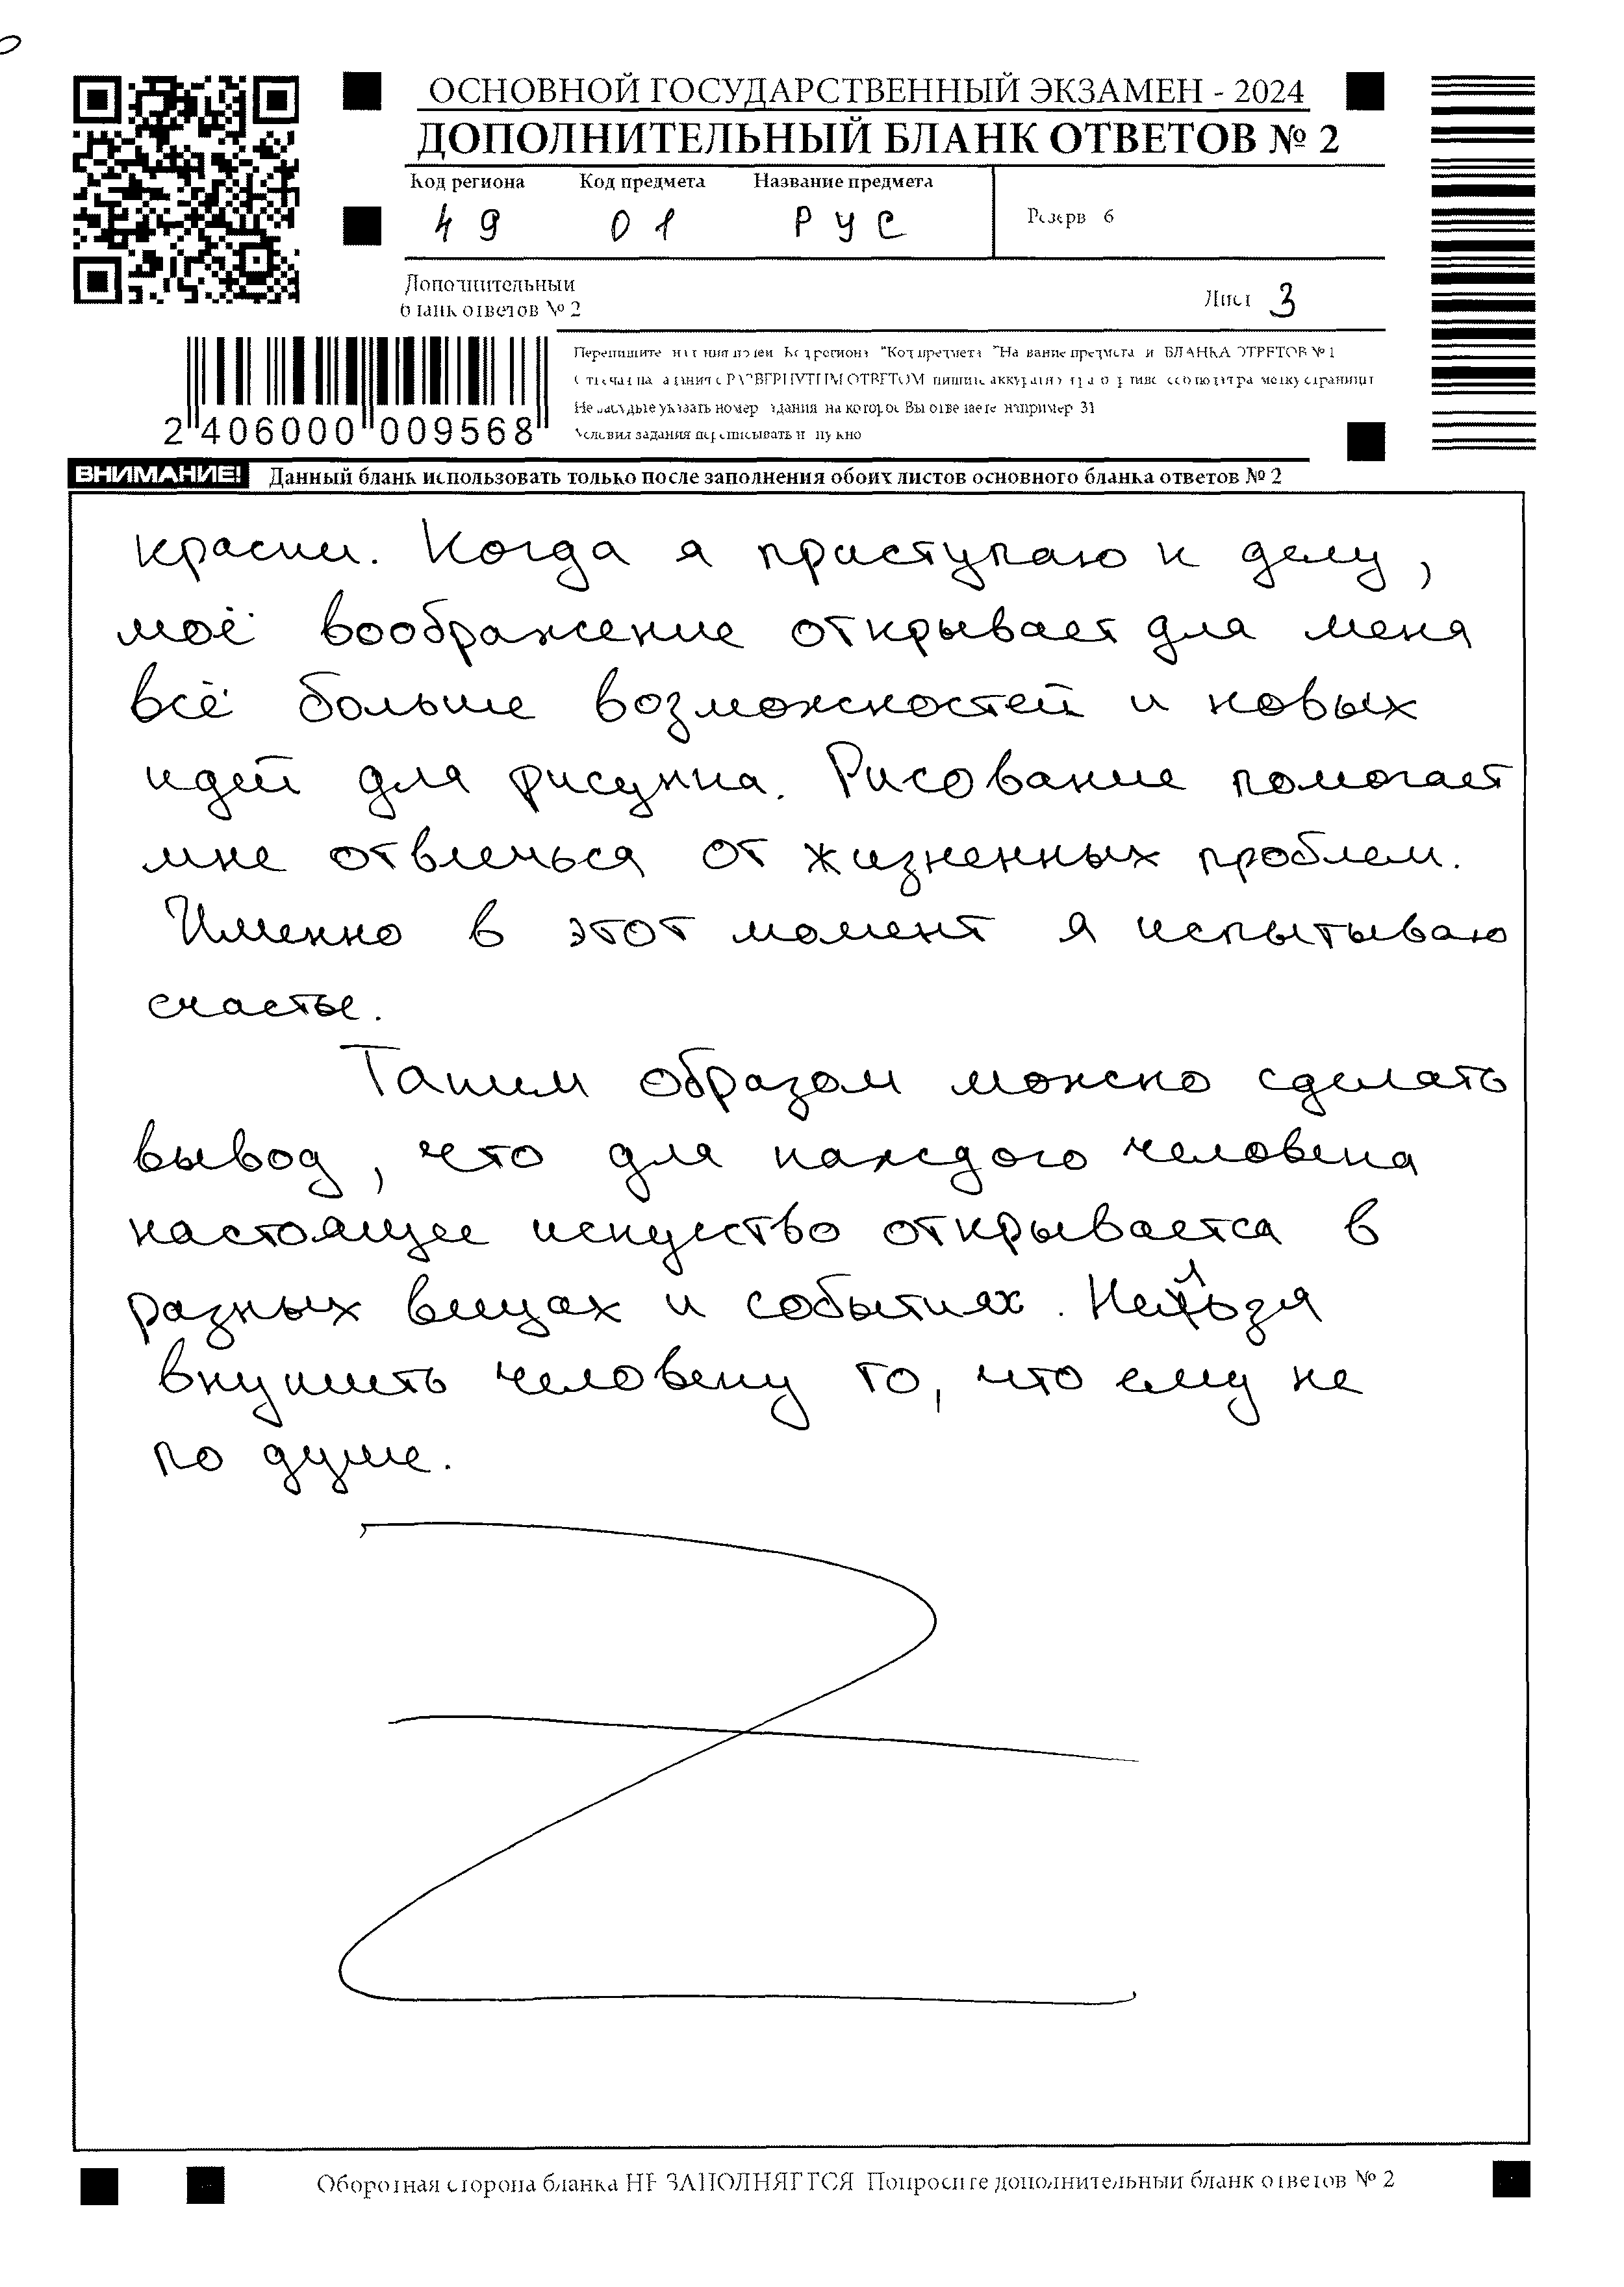 ОСНОВНОЙ ГОСУДАРСТВЕННЫЙ ЭКЗАМЕН - 2024
ДОПОЛНИТЕЛЬНЫЙ БЛАНК ОТВЕТОВ № 2
Код региона Код предмета Название предмета
49 01 РУС
Резерв 6
Дополнительный
бланк ответов № 2
Лист 3
Перепишите "Код региона" "Код предмета" "Название предмета" и БЛАНКА ОТВЕТОВ № 1
Отвечая на задания с РАЗВЕРНУТЫМ ОТВЕТОМ пишите аккуратно разметку страницы
Не забудьте указать номер задания на которое Вы отвечаете например 31
Условия задания переписывать не нужно
2 406000 009568
ВНИМАНИЕ! Данный бланк использовать только после заполнения обоих листов основного бланка ответов № 2
краски. Когда я приступаю к делу,
моё воображение открывает для меня
всё больше возможностей и новых
идей для рисунка. Рисование помогает
мне отвлечься от жизненных проблем.
Именно в этот момент я испытываю
счастье.
Таким образом можно сделать
вывод, что для каждого человека
настоящее искуство открывается в
разных вещах и событиях. Нельзя
внушить человеку то, что ему не
по душе.
Оборотная сторона бланка НЕ ЗАПОЛНЯЕТСЯ Попросите дополнительный бланк ответов № 2